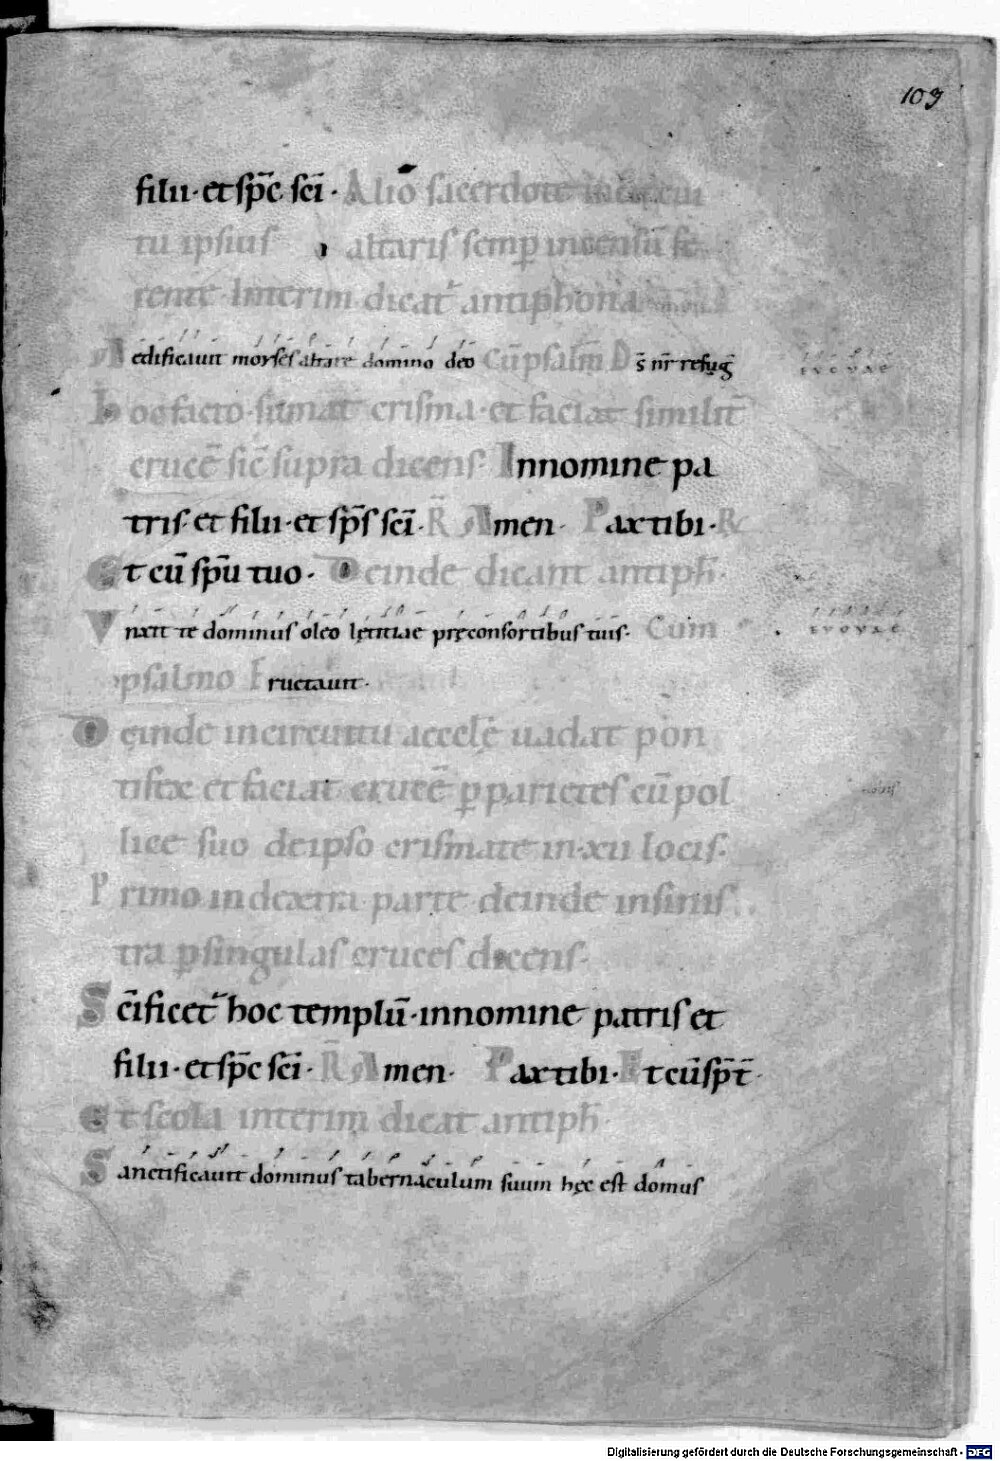 109
filii · et sp̄c sc̄i · Alio sacerdote in circui
tu ipsius altaris semꝑ incensū fe
rente · Interim dicat̄ antiphona
Aedificauit moyses altare domino deo cū psalm̄ D s̄ nr̄ refuḡ EVOVAE
hoc facto · sumat crisma · et faciat similit̄
crucē sic̄ supra dicens · Innomine pa
tris · et filii · et sp̄s sc̄i · R̄ Amen · Pax tibi · R̄
Et cū sp̄u tuo · Deinde dicant antiph̄ ·
Vnxit te dominus oleo lętitiae pręconsortibus tuis · Cum EVOVAE
psalmo Eructauit ·
Deinde incircuitu ęcclę uadat pon
tifex et faciat crucē ꝑ parietes cū pol
lice suo deipso crismate in · xii locis ·
Primo in dextra parte deinde insinis
tra ꝑ singulas cruces dicens ·
Sc̄ificet̄ hoc templū · innomine patris et
filii · et sp̄c sc̄i · R̄ Amen · Pax tibi · Et cū sp̄t̄ ·
Et scola interim dicat antiph̄ ·
Sanctificauit dominus tabernaculum suum hęc est domus
Digitalisierung gefördert durch die Deutsche Forschungsgemeinschaft - DFG